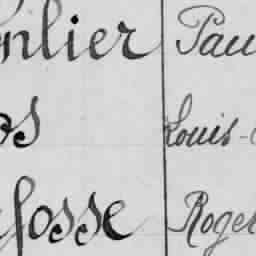 nlier Pau
os Louis-
fosse Roger